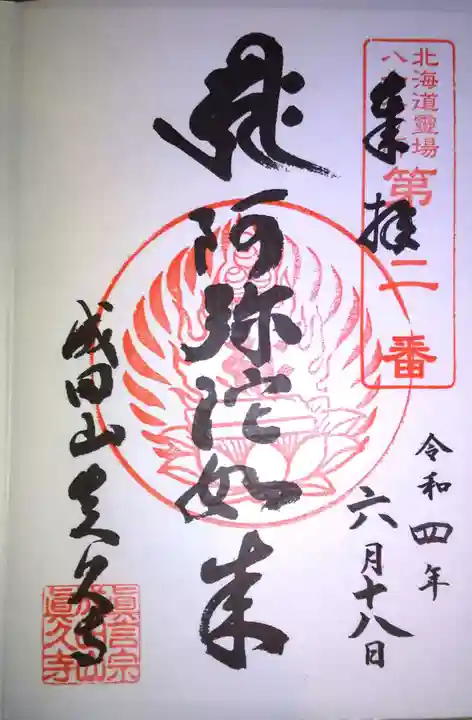 北海道霊場
八十八ヶ所
第二番
奉拝
令和四年
六月十八日
阿弥陀如来
成田山真久寺
真言宗
成田山
眞久寺